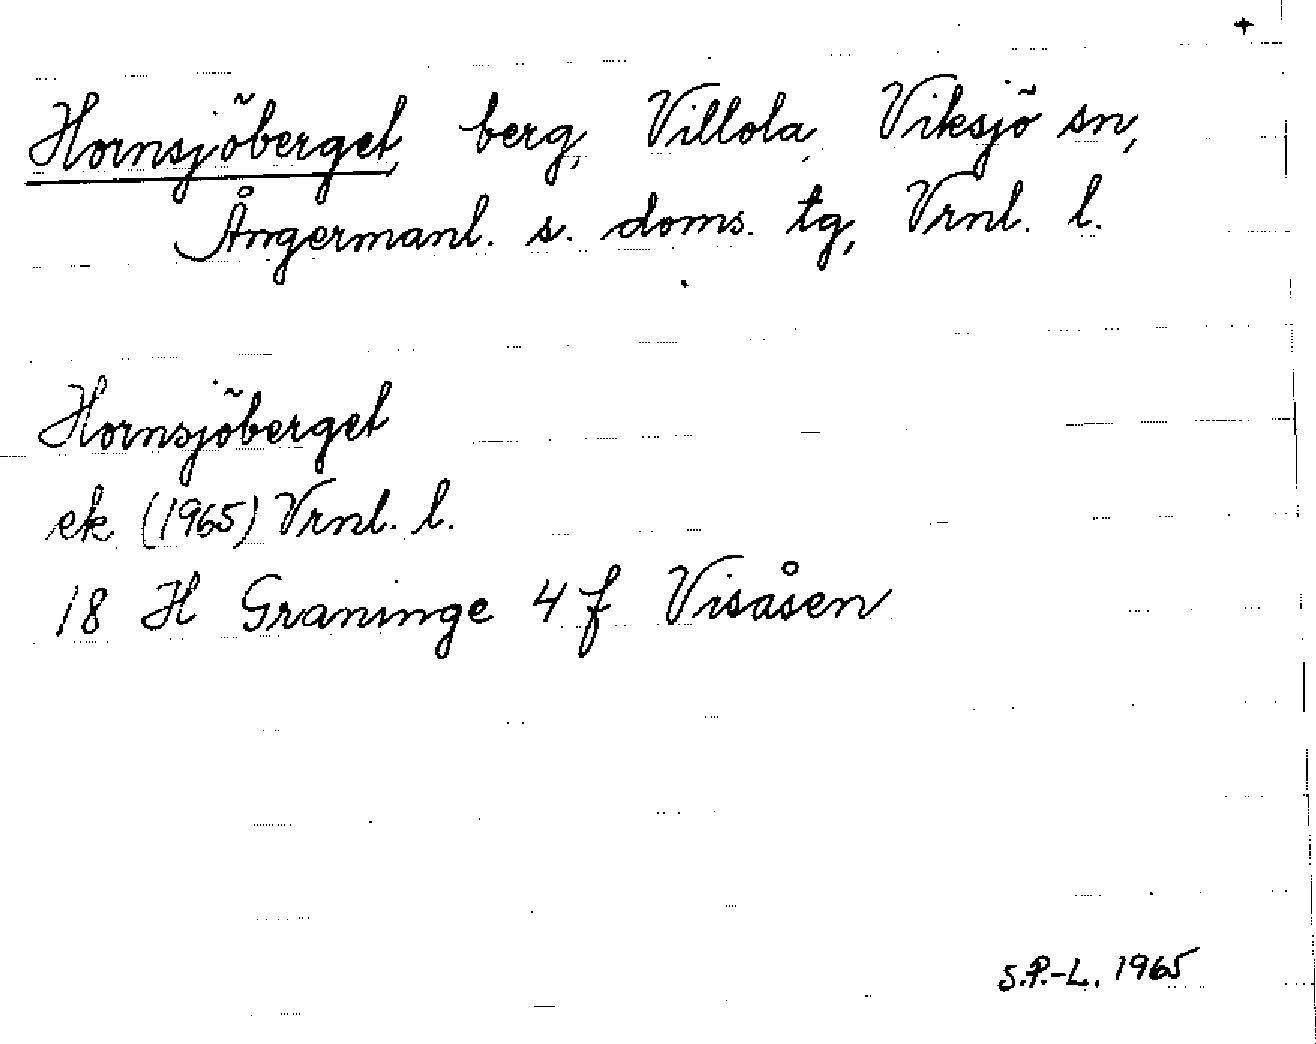 +
Hornsjöberget, berg, Villola, Viksjö sn,
Ångermanl. s. doms. tg, Vrnl. l.
Hornsjöberget
ek. (1965) Vrnl. l.
18 H Graninge 4 f Visåsen
S.P.-L. 1965